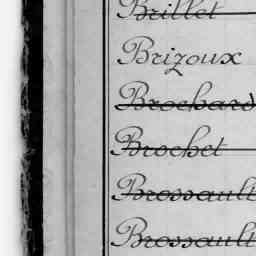 Brillet
Brizoux
Brochard
Brochet
Brossault
Brossault